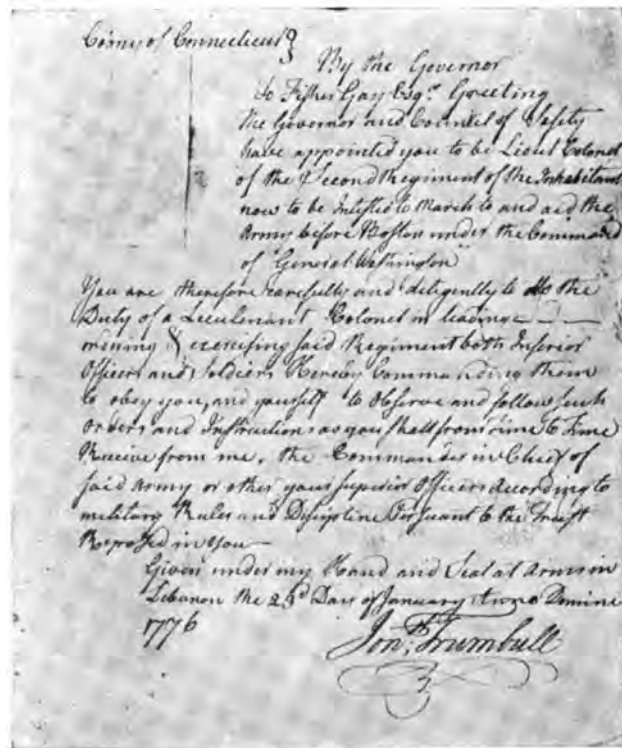 Colony of Connecticut
By the Governor
To Fisher Gay Esqr. Greeting
The Governor and Council of Safety
have appointed you to be Lieut Colonel
of the Second Regiment of the Inhabitants
now to be Inlisted to March to and aid the
Army before Boston under the Command
of General Washington
You are therefore carefully and diligently to do the
Duty of a Lieutenant Colonel in leading
ordering & exercising said Regiment both Inferior
Officers and Soldiers Hereby Commanding them
to obey you, and yourself to Observe and follow such
orders and Instructions as you shall from time to time
Receive from me, the Commander in Chief of
said Army or other your superior Officers According to
military Rules and Discipline Persuant to the Trust
Reposed in you
Given under my Hand and Seal at Arms in
Lebanon the 23d Day of January Anno Domine
1776
Jonth. Trumbull